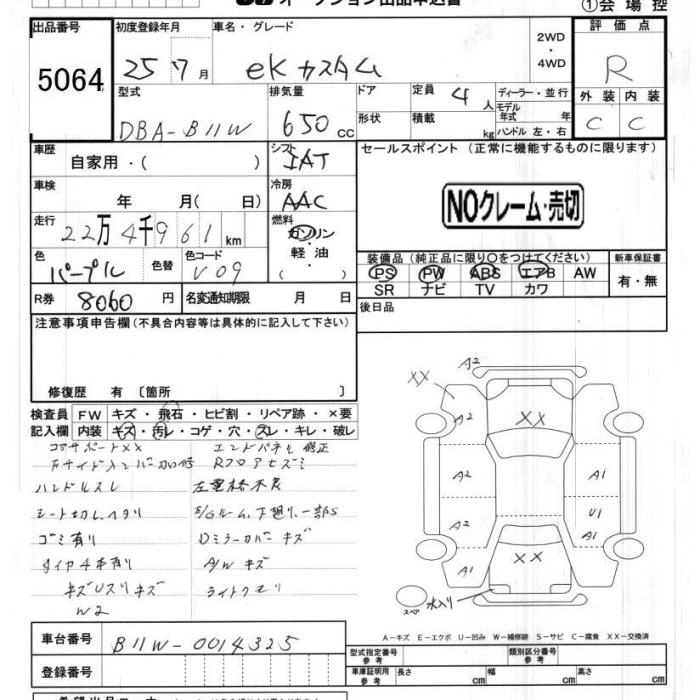 オークション出品申込書
①会場控
出品番号 5064
初度登録年月 25 7月
車名・グレード eKカスタム
2WD・4WD
評価点 R
外装 C 内装 C
型式 DBA-B11W
排気量 650cc
ドア 形状
定員 4人
積載 kg
ディーラー・並行
モデル年式 年
ハンドル 左・右
車歴 自家用・( )
シフト IAT
セールスポイント (正常に機能するものに限ります)
NOクレーム・売切
車検 年 月( 日)
冷房 AAC
走行 22万4千961km
燃料 ガソリン・軽油・( )
色 パープル 色替
色コード V09
装備品 (純正品に限り〇をつけてください)
PS PW ABS エアB AW
SR ナビ TV カワ
新車保証書 有・無
R券 8060円
名変通知期限 月 日
後日品
注意事項申告欄(不具合内容等は具体的に記入して下さい)
修復歴 有 〔箇所 〕
検査員記入欄
FW キズ・飛石・ヒビ割・リペア跡・×要
内装 キズ・汚レ・コゲ・穴・スレ・キレ・破レ
コアサポートXX エンドパネル修正
ハンドルスレ
ゴミ有り Dミラーカバーキズ
タイヤ4本有り A/Wキズ
キズUスリキズ ライトクモリ
W2
A2
XX
A2
XX
A2 A1
A2 U1
A1
A1 XX
水入り
スペア
A-キズ E-エクボ U-凹み W-補修跡 S-サビ C-腐食 XX-交換済
車台番号 B11W-0014325
型式指定番号 参考
類別区分番号 参考
登録番号
車庫証明用 参考 長さ cm 幅 cm 高さ cm